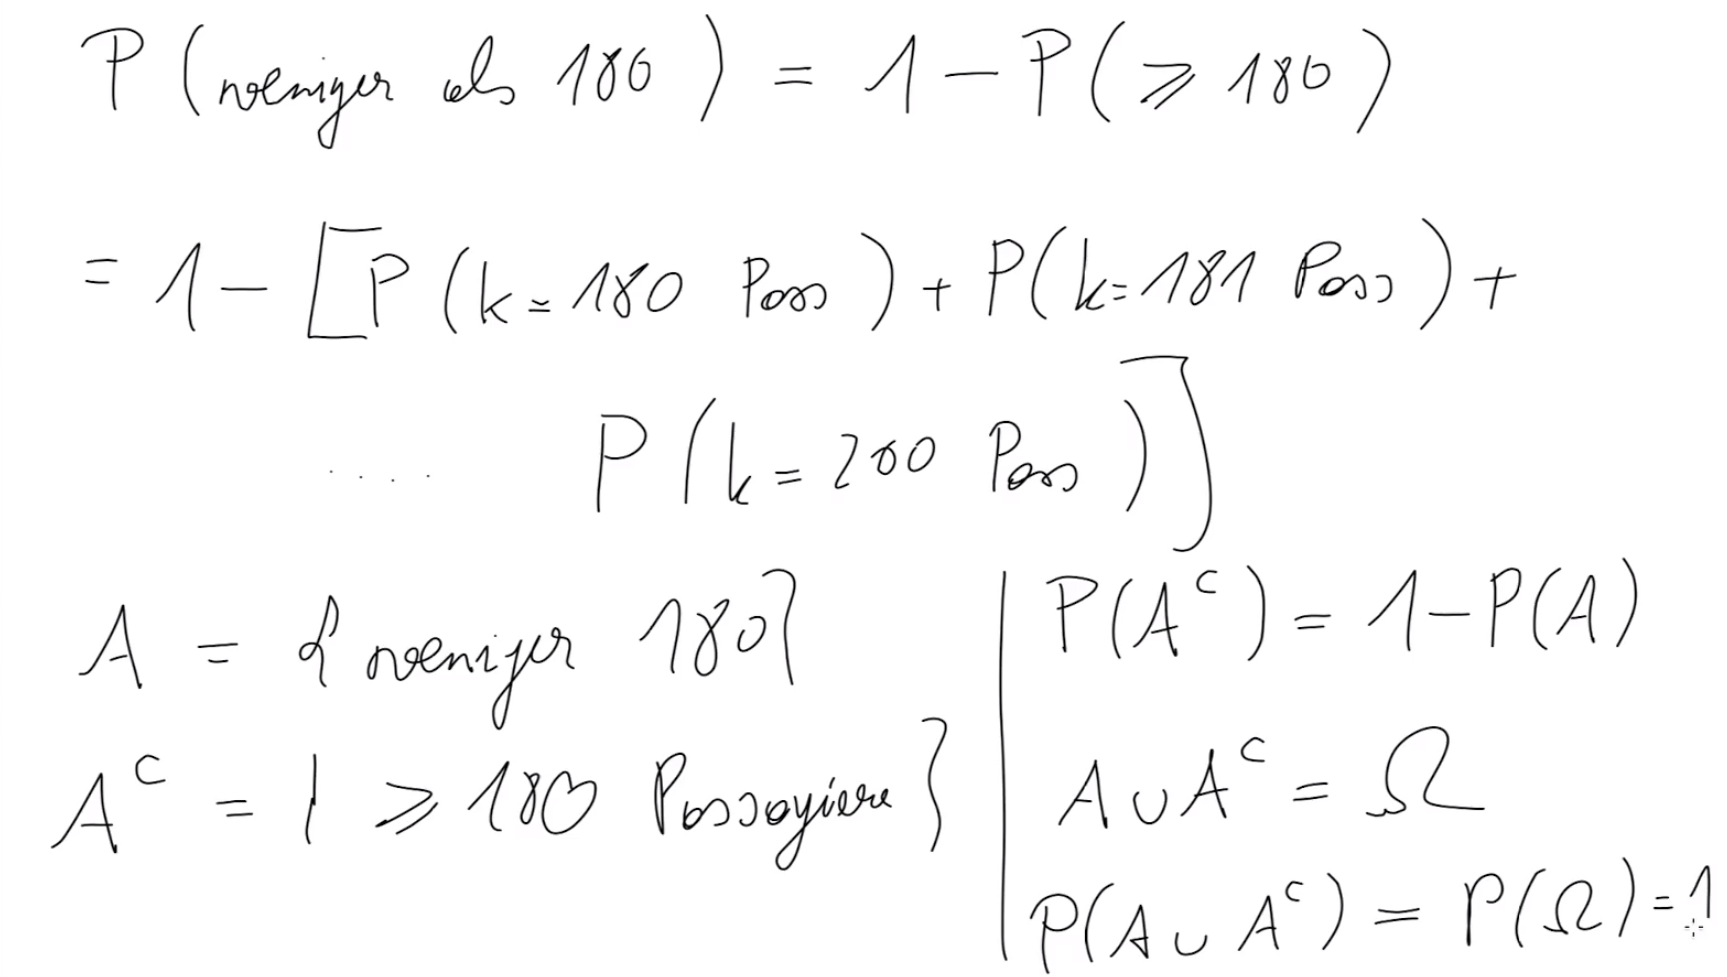 P (weniger als 180) = 1 - P (⩾ 180)
= 1 - [P (k = 180 Pass) + P(k = 181 Pass) +
.... P (k = 200 Pass)]
A = { weniger 180}
A^c = { ⩾ 180 Passagiere }
P(A^c) = 1 - P(A)
A ∪ A^c = Ω
P(A ∪ A^c) = P(Ω) = 1